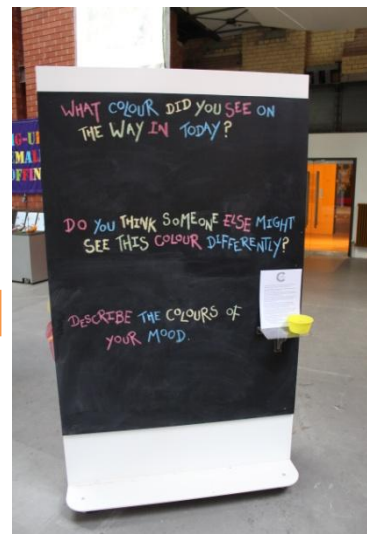 WHAT COLOUR DID YOU SEE ON
THE WAY IN TODAY?
DO YOU THINK SOMEONE ELSE MIGHT
SEE THIS COLOUR DIFFERENTLY?
DESCRIBE THE COLOURS OF
YOUR MOOD.